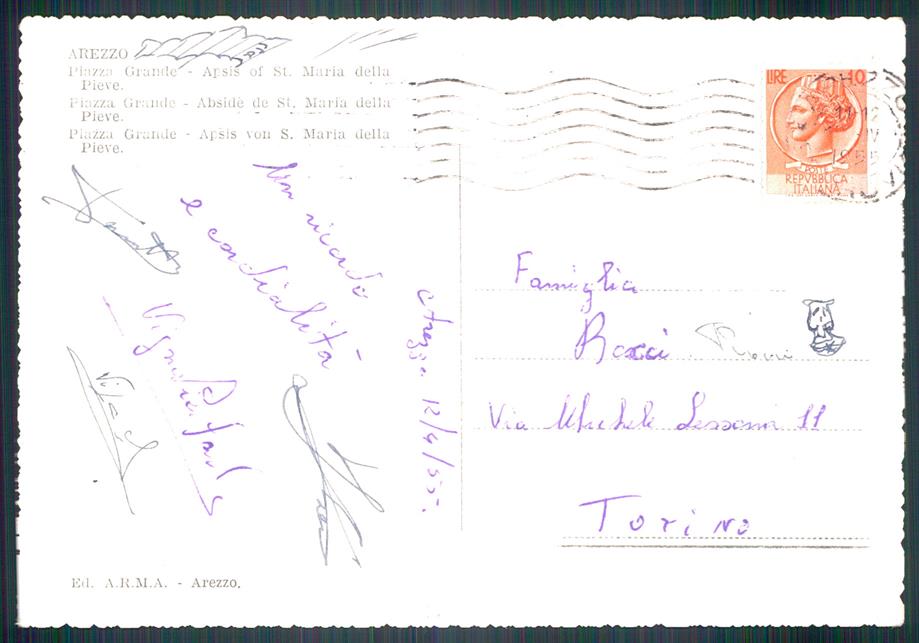 AREZZO
Piazza Grande - Apsis of St. Maria della
Pieve.
Piazza Grande - Abside de St. Maria della
Pieve.
Piazza Grande - Apsis von S. Maria della
Pieve.
LIRE 10
POSTE
REPVBBLICA
ITALIANA
11-12
1955
Un ricordo
e cordialità
Arezzo 12/4/55.
Famiglia
Via Michele Lessona 11
Torino
Ed. A.R.M.A. - Arezzo.